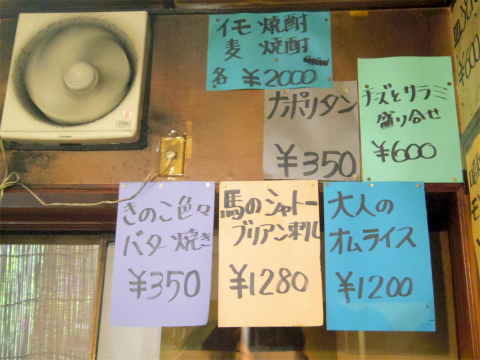 イモ焼酎
麦焼酎
各¥2000
ナポリタン
¥350
チーズとサラミ
盛り合せ
¥600
きのこ色々
バター焼き
¥350
馬のシャトー
ブリアン刺し
¥1280
大人の
オムライス
¥1200